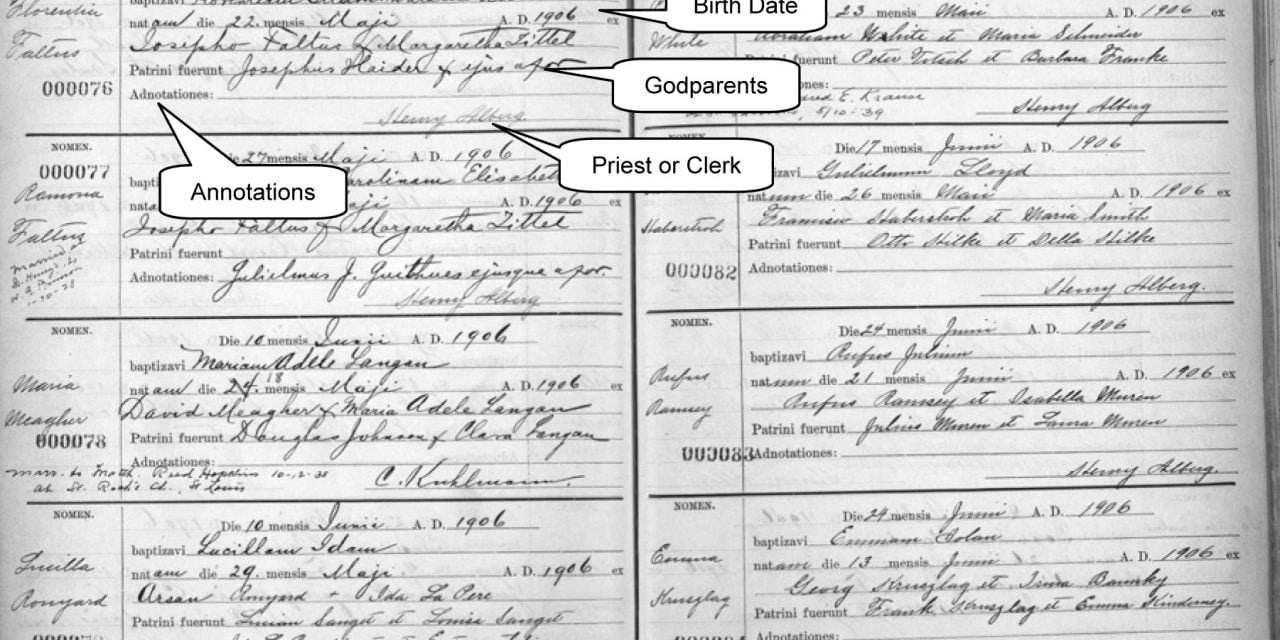 Birth Date
Florentin
natam die 22. mensis Maji A. D. 1906 ex
Faltus
Josepho Faltus & Margaretha Zittel
Patrini fuerunt Josephus Haider & ejus apor
Godparents
000076
Adnotationes:
Henry Alberg.
Priest or Clerk
Annotations
NOMEN.
000077
Die 27 mensis Maji A. D. 1906
Ramona
bapti Carolinam Elisabet
nata Maji A. D. 1906
Faltus
Josepho Faltus & Margaretha Zittel
Patrini fuerunt
Adnotationes: Gulielmus J. Guithues ejusque apor.
married
St. Henry's
1-30-28
Henry Alberg
NOMEN.
Die 10 mensis Junii A. D. 1906
baptizavi Mariam Adele Langan
Maria
natam die 24. 18 mensis Maji A. D. 1906 ex
Meagher
David Meagher & Maria Adele Langan
000078
Patrini fuerunt Douglas Johnson & Clara Langan
Adnotationes:
marr. to Reed Hopkins 10-2-38
at St. Roch's Ch., St Louis
C. Kuhlmann.
NOMEN.
Die 10 mensis Junii A. D. 1906
baptizavi Lucillam Idam
Lucilla
natam die 29. mensis Maji A. D. 1906 ex
Ronyard
Arsan Ronyard + Ida La Pere
Patrini fuerunt Linian Sanget et Louisa Sanget
23 mensis Maii A. D. 1906 ex
White
Abraham White et Maria Schneider
Patrini fuerunt Peter Totsch et Barbara Franke
E. Krause
5/10-39
Henry Alberg
Die 17 mensis Junii A. D. 1906
Gulielmum Lloyd
natum die 26 mensis Maii A. D. 1906 ex
Haberstroh
Francisco Haberstroh et Maria Smith
Patrini fuerunt Otto Hilke et Della Hilke
000082
Adnotationes:
Henry Alberg.
NOMEN.
Die 24 mensis Junii A. D. 1906
baptizavi Rufus Julium
Rufus
natum die 21 mensis Junii A. D. 1906 ex
Ramsey
Rufus Ramsey et Isabella Muren
Patrini fuerunt Julius Muren et Laura Muren
000083
Adnotationes:
Henry Alberg.
NOMEN.
Die 24 mensis Junii A. D. 1906
baptizavi Emmam
Emma
natam die 13 mensis Junii A. D. 1906 ex
Kruszlag
Georg Kruszlag et Irma
Patrini fuerunt Frank Kruszlag et Emma
Adnotationes: